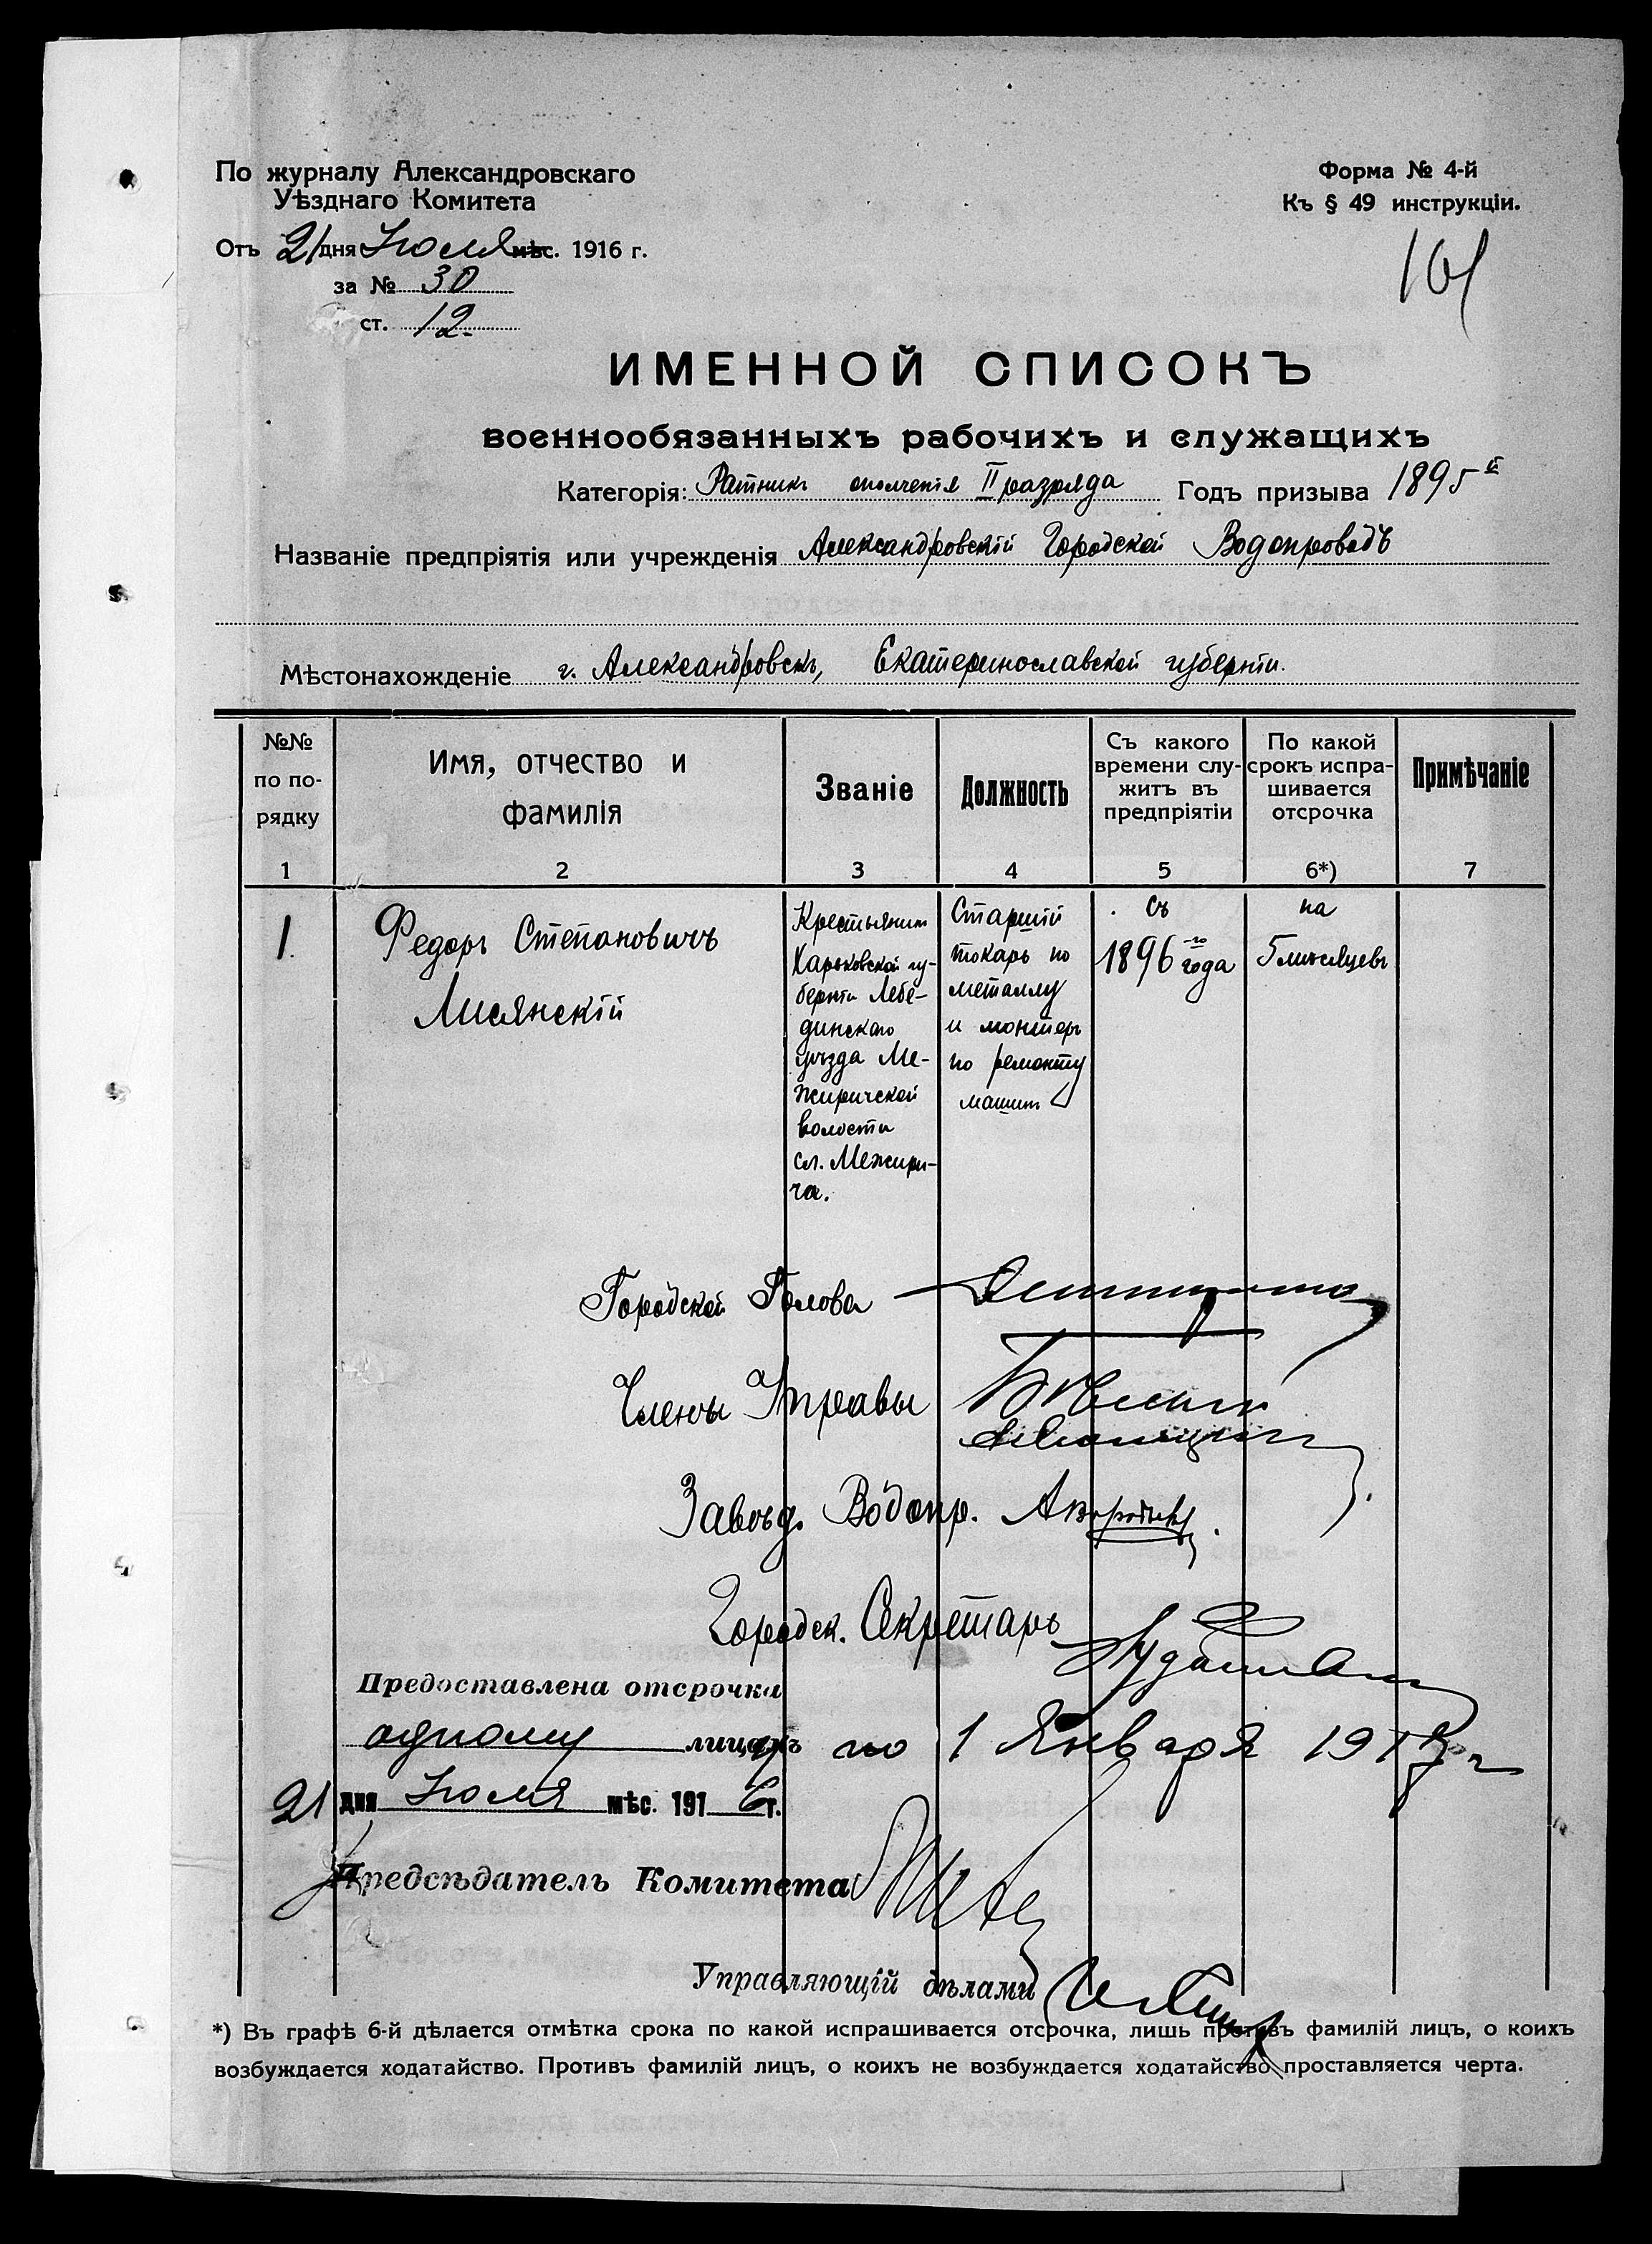 По журналу Александровскаго
Уѣзднаго Комитета
Отъ 21 дня Іюля мѣс. 1916 г.
за № 30
ст. 12.
Форма № 4-й
Къ § 49 инструкціи.
101
ИМЕННОЙ СПИСОКЪ
военнообязанныхъ рабочихъ и служащихъ
Категорія: Ратникъ ополченія II разряда Годъ призыва 1895
Названіе предпріятія или учрежденія Александровскій Городской Водопроводъ
Мѣстонахожденіе г. Александровскъ, Екатеринославской губерніи.
№№
по по-
рядку
Имя, отчество и
фамилія
Званіе
Должность
Съ какого
времени слу-
житъ въ
предпріятіи
По какой
срокъ испра-
шивается
отсрочка
Примѣчаніе
1 2 3 4 5 6*) 7
1.
Федоръ Степановичъ
Лисянскій
Крестьянинъ
Харьковской гу-
берніи Лебе-
динскаго
уѣзда Ме-
жиричской
волости
сл. Межири-
ча.
Старшій
токарь по
металлу
и монтеръ
по ремонту
машинъ
съ
1896 го года
на
5 мѣсяцевъ
Городской Голова
Члены Управы
Завѣд. Водопр.
Городск. Секретарь
Предоставлена отсрочка
одному лицу по 1 Января 1917 г
21 дня Іюля мѣс. 1916 г.
Предсѣдатель Комитета
Управляющій дѣлами
*) Въ графѣ 6-й дѣлается отмѣтка срока по какой испрашивается отсрочка, лишь противъ фамилій лицъ, о коихъ
возбуждается ходатайство. Противъ фамилій лицъ, о коихъ не возбуждается ходатайство проставляется черта.